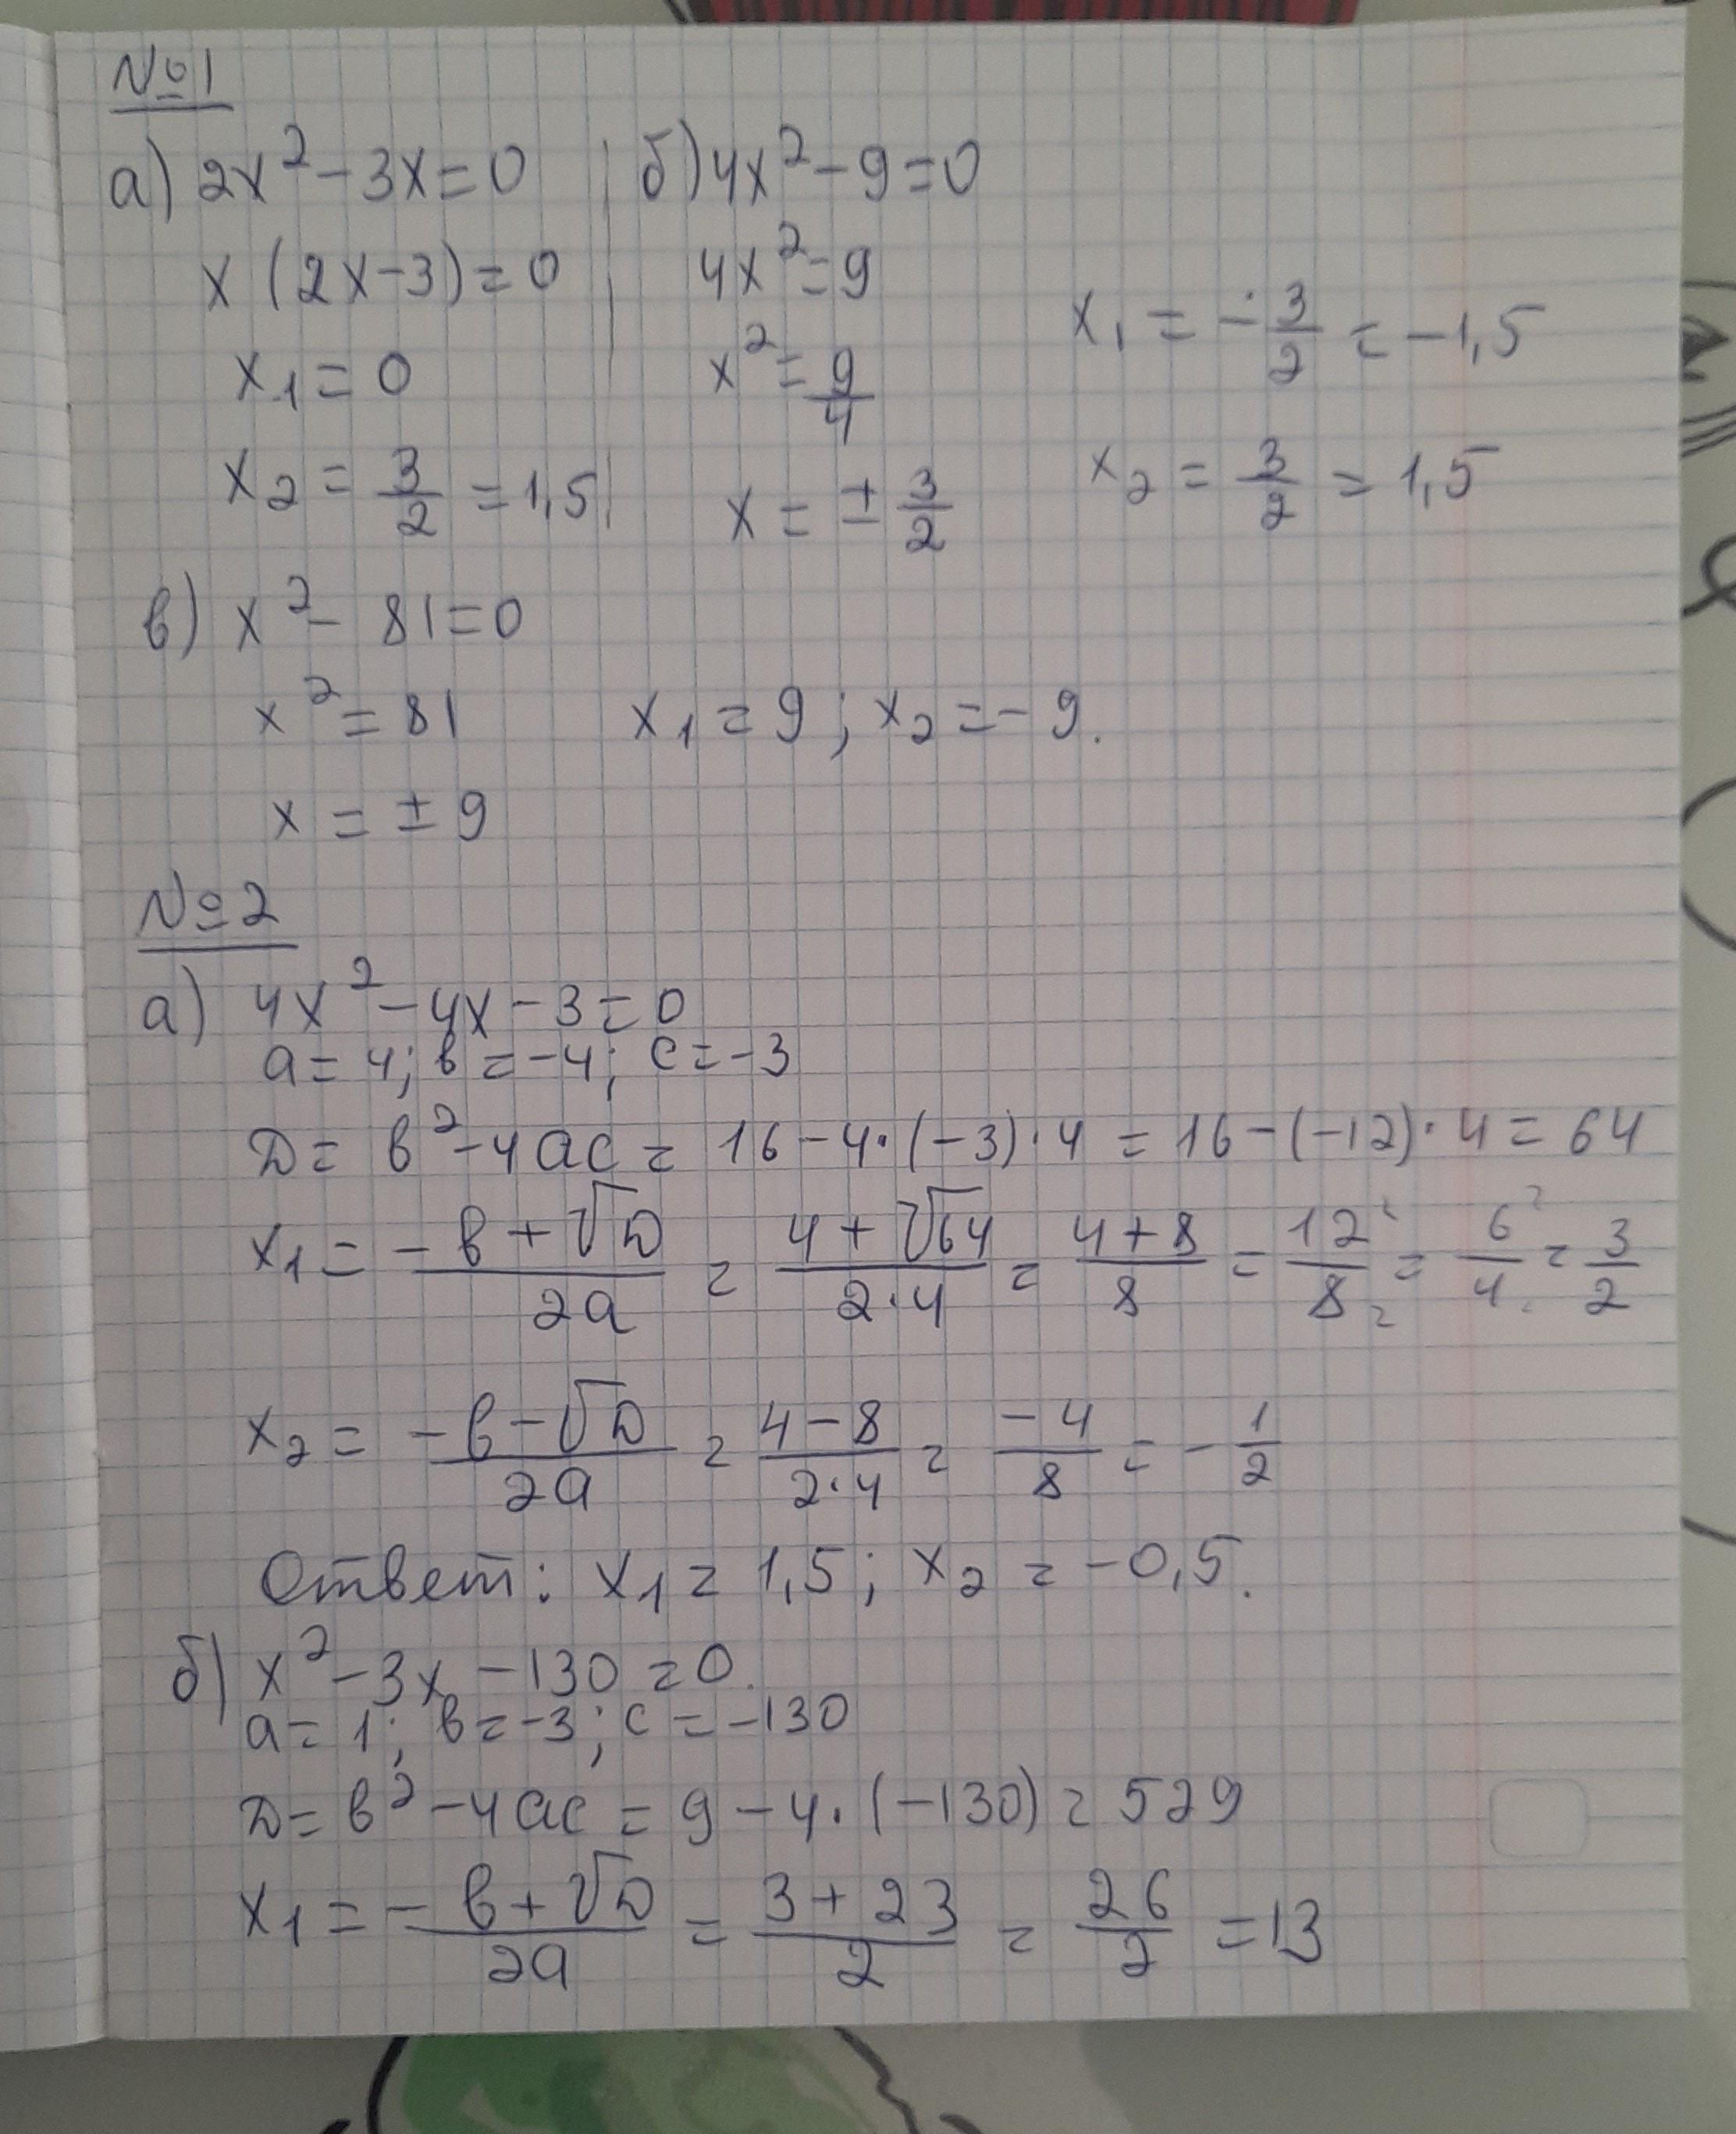 №1
а) 2x² - 3x = 0
x (2x - 3) = 0
x₁ = 0
x₂ = 3/2 = 1,5
б) 4x² - 9 = 0
4x² = 9
x² = 9/4
x = ± 3/2
x₁ = - 3/2 = -1,5
x₂ = 3/2 = 1,5
в) x² - 81 = 0
x² = 81
x₁ = 9 ; x₂ = - 9.
x = ± 9
№2
а) 4x² - 4x - 3 = 0
a = 4; в = -4; c = -3
D = в² - 4ac = 16 - 4·(-3)·4 = 16 - (-12)·4 = 64
x₁ = (-в + √D)/2a = (4 + √64)/2·4 = (4 + 8)/8 = 12/8 = 6/4 = 3/2
x₂ = (-в - √D)/2a = (4 - 8)/2·4 = -4/8 = - 1/2
Ответ: x₁ = 1,5 ; x₂ = -0,5.
б) x² - 3x - 130 = 0.
a = 1; в = -3; c = -130
D = в² - 4ac = 9 - 4·(-130) = 529
x₁ = (-в + √D)/2a = (3 + 23)/2 = 26/2 = 13